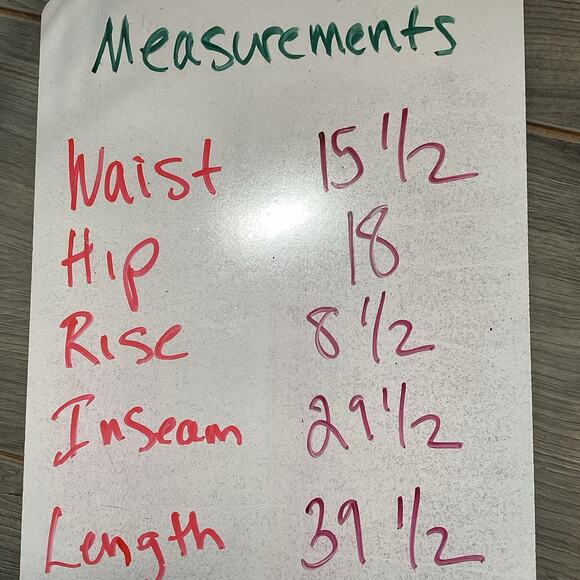 Measurements
Waist 15 1/2
Hip 18
Rise 8 1/2
Inseam 29 1/2
Length 39 1/2